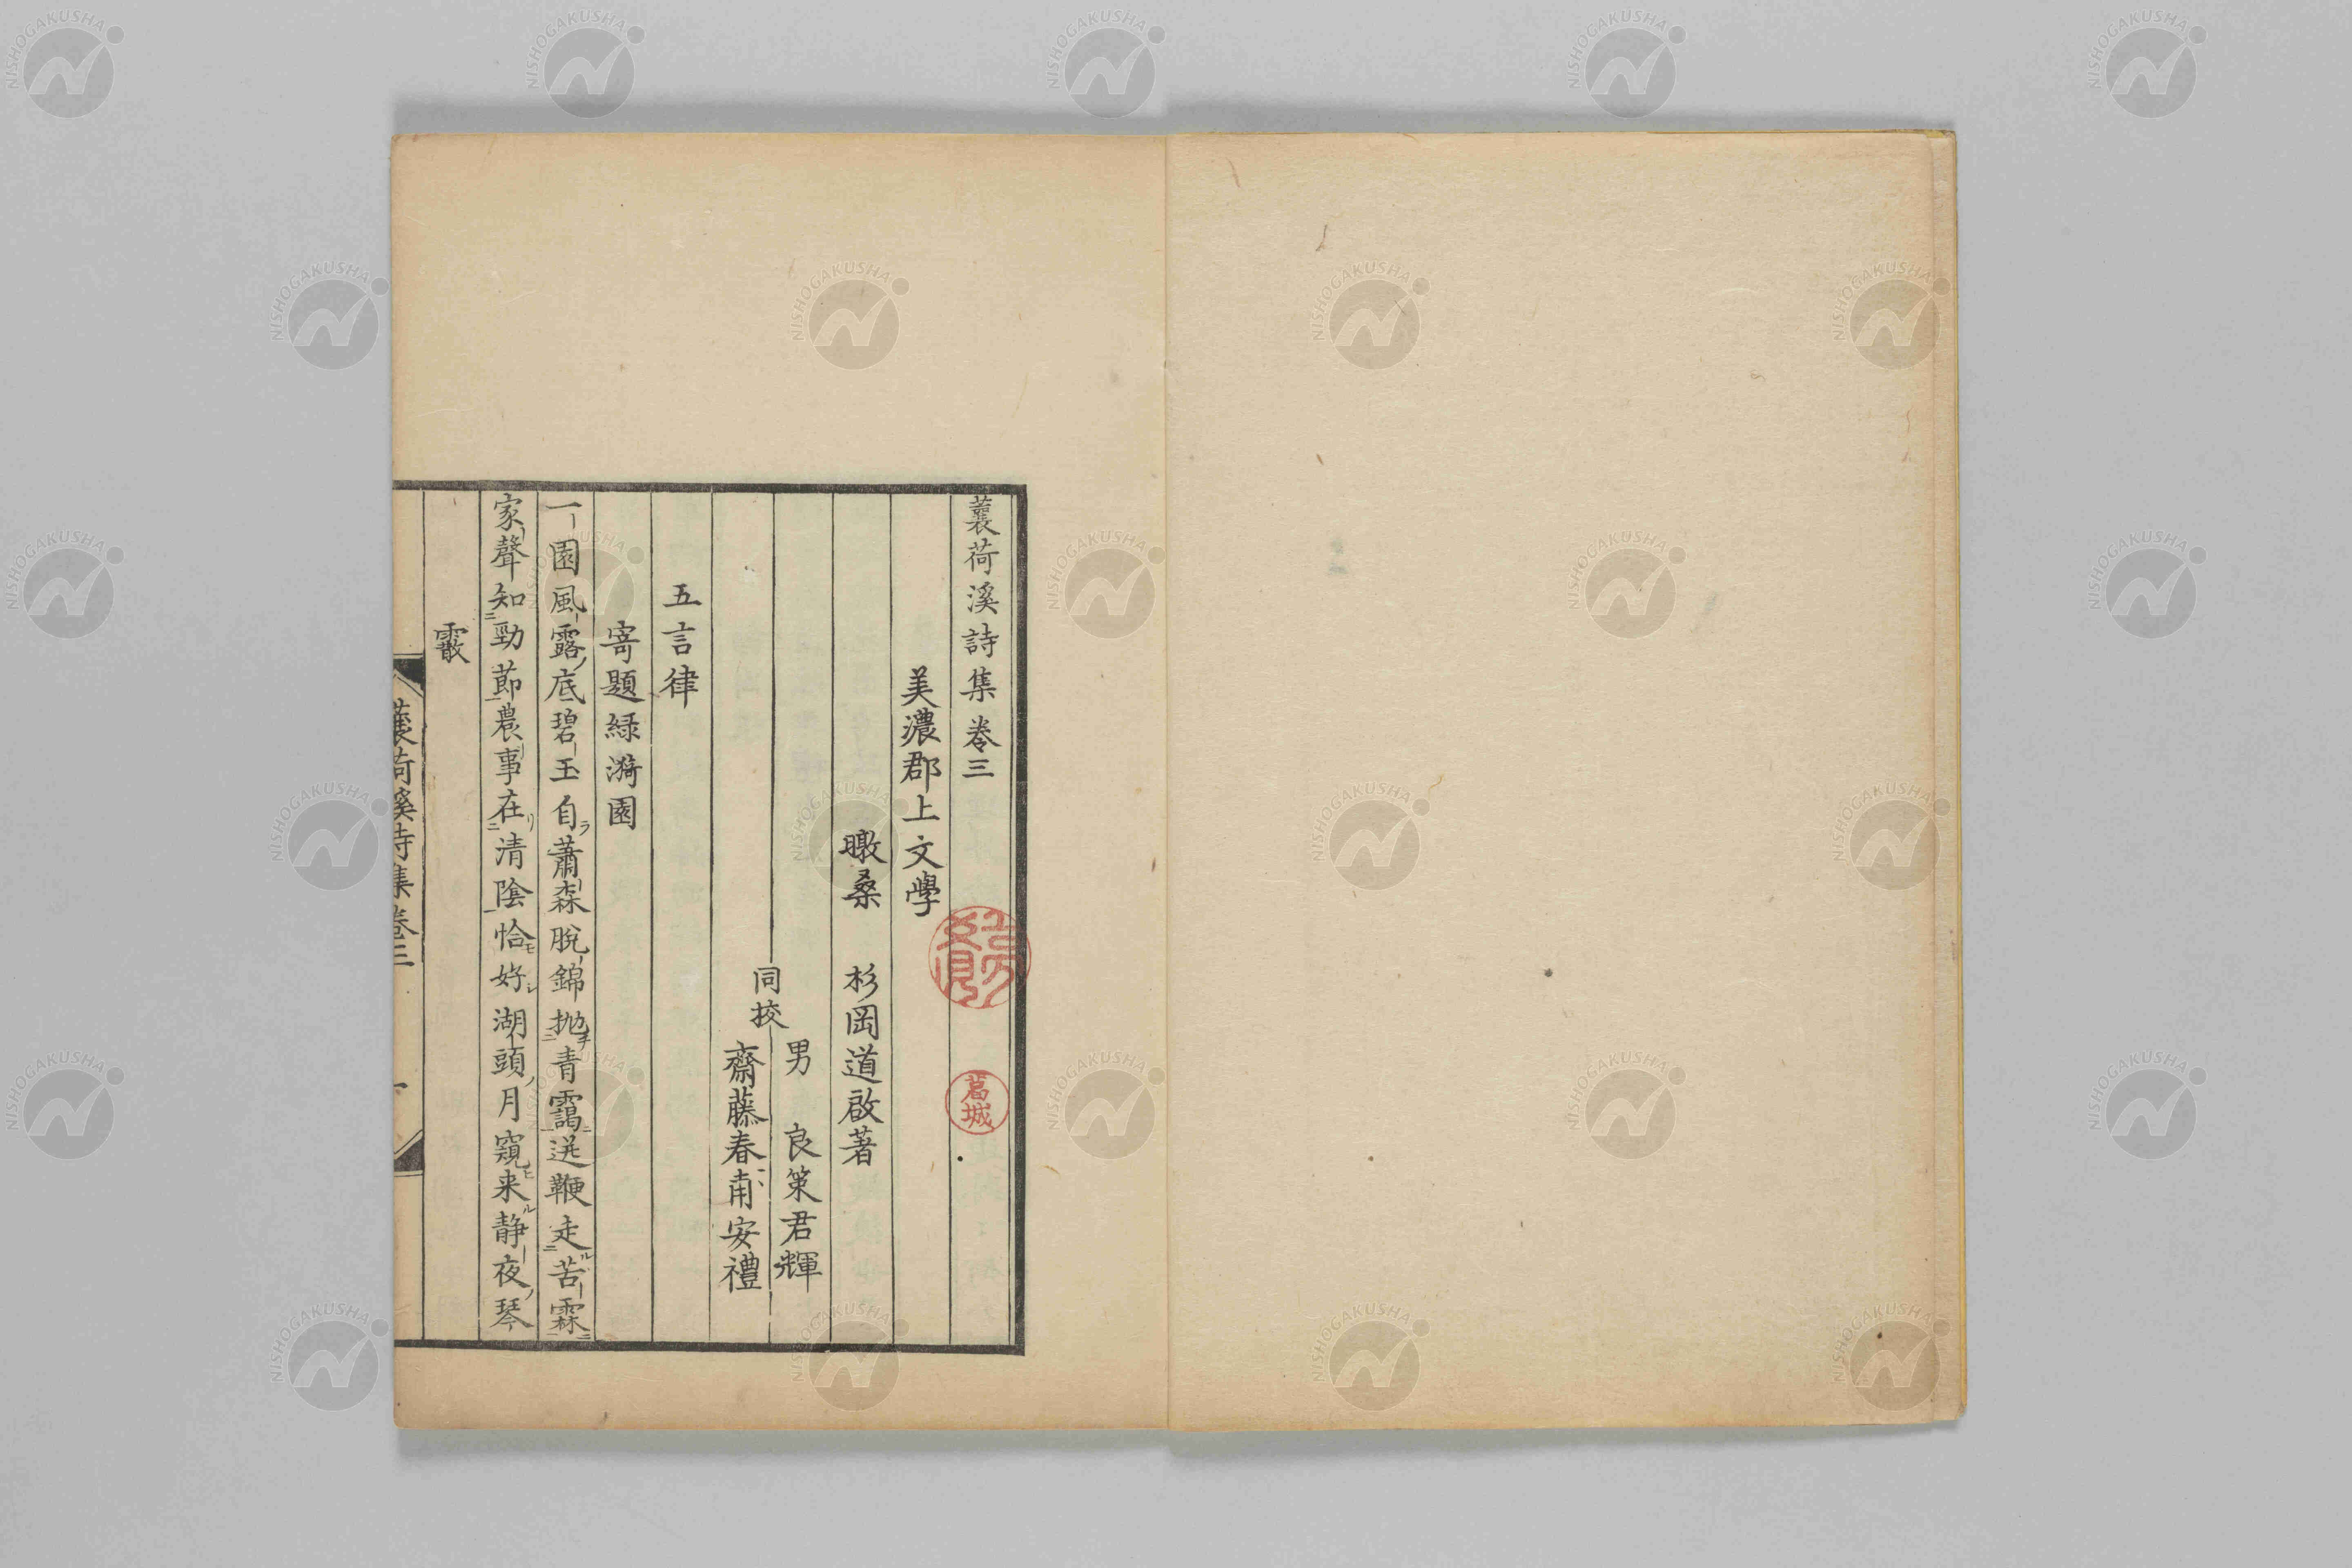 蘘荷溪詩集卷三
美濃郡上文學
暾桑　杉岡道啟著
男　良策君輝
同挍
齋藤春甫安禮
五言律
寄題緑漪園
一園風露底碧玉自蕭森脫錦拋青靄迸鞭走苦霖
家聲知勁節農事在清陰恰好湖頭月窺来靜夜琴
霰
蘘荷溪詩集卷三
一
葛城
NISHOGAKUSHA